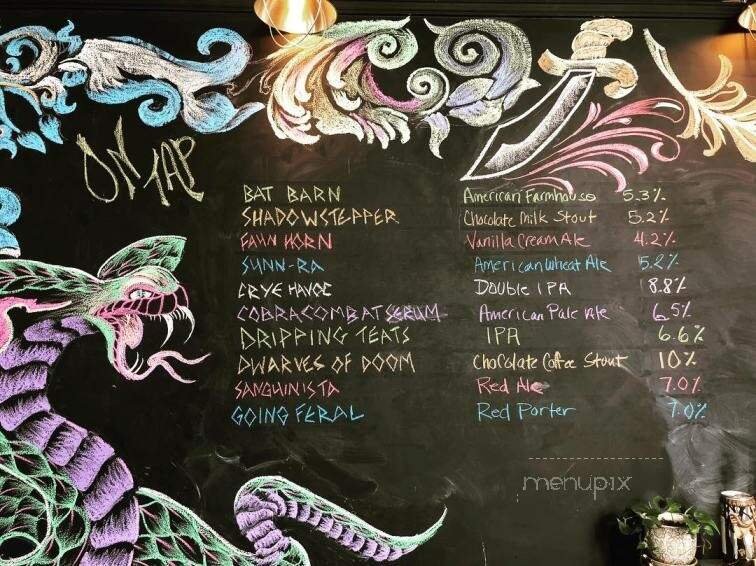 ON TAP
BAT BARN American Farmhouse 5.3%
SHADOWSTEPPER Chocolate Milk Stout 5.2%
FAUN HORN Vanilla Cream Ale 4.2%
SUNN-RA American Wheat Ale 5.2%
CRYE HAVOC Double IPA 8.8%
COBRACOMBATSERUM American Pale Ale 6.5%
DRIPPING TEATS IPA 6.6%
DWARVES OF DOOM Chocolate Coffee Stout 10%
SANGUINISTA Red Ale 7.0%
GOING FERAL Red Porter 7.0%
menupix